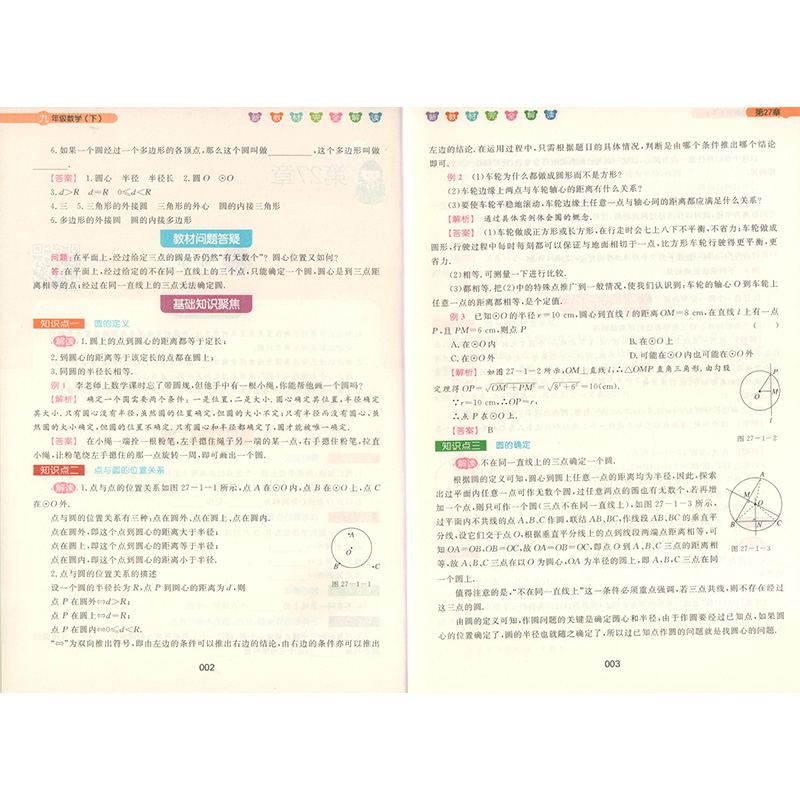 九年级数学(下)
新教材完全解读
6.如果一个圆经过一个多边形的各顶点,那么这个圆叫做________,这个多边形叫做
________.
【答案】 1.圆心 半径 半径长 2.圆O ⊙O
3.d>R d=R 0≤d<R
4.三 5.三角形的外接圆 三角形的外心 圆的内接三角形
6.多边形的外接圆 圆的内接多边形
教材问题答疑
问题:在平面上,经过给定三点的圆是否仍然“有无数个”?圆心位置又如何?
答:在平面上,经过给定的不在同一直线上的三个点,只能确定一个圆,圆心是到三点距
离相等的点;经过在同一直线上的三点无法确定圆.
基础知识聚焦
知识点一 圆的定义
解读 1.圆上的点到圆心的距离都等于定长;
2.到圆心的距离等于该定长的点都在圆上;
3.同圆的半径长相等.
例1 李老师上数学课时忘了带圆规,但他手中有一根小绳,你能帮他画一个圆吗?
【解析】 确定一个圆需要两个条件:一是位置,二是大小.圆心确定其位置,半径确定
其大小.只有圆心没有半径,虽然圆的位置确定,但圆的大小不定;只有半径而没有圆心,虽
然圆的大小确定,但圆的位置不确定.只有圆心和半径都确定了,圆才能被唯一确定.
【答案】 在小绳一端拴一根粉笔,左手摁住绳子另一端的某一点,右手摁住粉笔,拉直
小绳,让粉笔绕左手摁住的那一点旋转一周,即可画出一个圆.
知识点二 点与圆的位置关系
解读 1.点与圆的位置关系如图27-1-1所示,点A在⊙O内,点B在⊙O上,点C
在⊙O外.
点与圆的位置关系有三种:点在圆外、点在圆上、点在圆内.
点在圆外,即这个点到圆心的距离大于半径;
点在圆上,即这个点到圆心的距离等于半径;
点在圆内,即这个点到圆心的距离小于半径.
2.点与圆的位置关系的描述
设一个圆的半径长为R,点P到圆心的距离为d,则
点P在圆外⇔d>R;
点P在圆上⇔d=R;
点P在圆内⇔0≤d<R.
A
O
B
C
图27-1-1
“⇔”为双向推出符号,即由左边的条件可以推出右边的结论,由右边的条件亦可以推出
002
新教材完全解读
第27章
左边的结论.在运用过程中,只需根据题目的具体情况,判断是由哪个条件推出哪个结论
即可.
例2 (1)车轮为什么都做成圆形而不是方形?
(2)车轮边缘上两点与车轮轴心的距离有什么关系?
(3)要使车轮平稳地滚动,车轮边缘上任意一点与轴心间的距离都应满足什么关系?
【解析】 通过具体实例体会圆的概念.
【答案】 (1)车轮做成正方形或长方形,在行走时会七上八下不平衡,不省力;车轮做成
圆形,行驶过程中每时每刻都可以保证与地面相切于一点,比方形车轮行驶得更平衡,更
省力.
(2)相等.可测量一下进行比较.
(3)都相等.把(2)中的特殊点推广到一般情况,使我们认识到:车轮的轴心O到车轮上
任意一点的距离都相等,是个定值.
例3 已知⊙O的半径r=10 cm,圆心到直线l的距离OM=8 cm,在直线l上有一点
P,且PM=6 cm,则点P ( )
A.在⊙O内 B.在⊙O上
C.在⊙O外 D.可能在⊙O内也可能在⊙O外
【解析】 如图27-1-2所示,OM⊥直线l,∴△OMP直角三角形.由勾股
定理得OP=√(OM²+PM²)=√(8²+6²)=10(cm).
∵r=10 cm,∴OP=r.
∴点P在⊙O上.
【答案】 B
P
O
M
l
图27-1-2
知识点三 圆的确定
解读 不在同一直线上的三点确定一个圆.
根据圆的定义可知,圆心到圆上任意一点的距离均为半径.因此,探索
出过平面内任意一点可作无数个圆,过任意两点的圆也有无数个,若再增
加一个点,则只可作一个圆(三点不在同一直线上),如图27-1-3所示,
过平面内不共线的点A、B、C作圆,联结AB、BC,作线段AB、BC的垂直平
分线,设它们交于点O,根据垂直平分线上的点到线段两端点距离相等,可
知OA=OB,OB=OC,故OA=OB=OC,即点O到A、B、C三点的距离相
等,故A、B、C三点在以O为圆心,OA为半径的圆上,即A、B、C三点在同
一个圆上.
A
M
O
B
N
C
图27-1-3
值得注意的是,“不在同一直线上”这一条件必须重点强调,若三点共线,则不存在经过
这三点的圆.
由圆的定义可知,作圆问题的关键是确定圆心和半径,由于作圆要经过已知点,如果圆
心的位置确定了,圆的半径也就随之确定了,所以过已知点作圆的问题就是找圆心的问题.
003